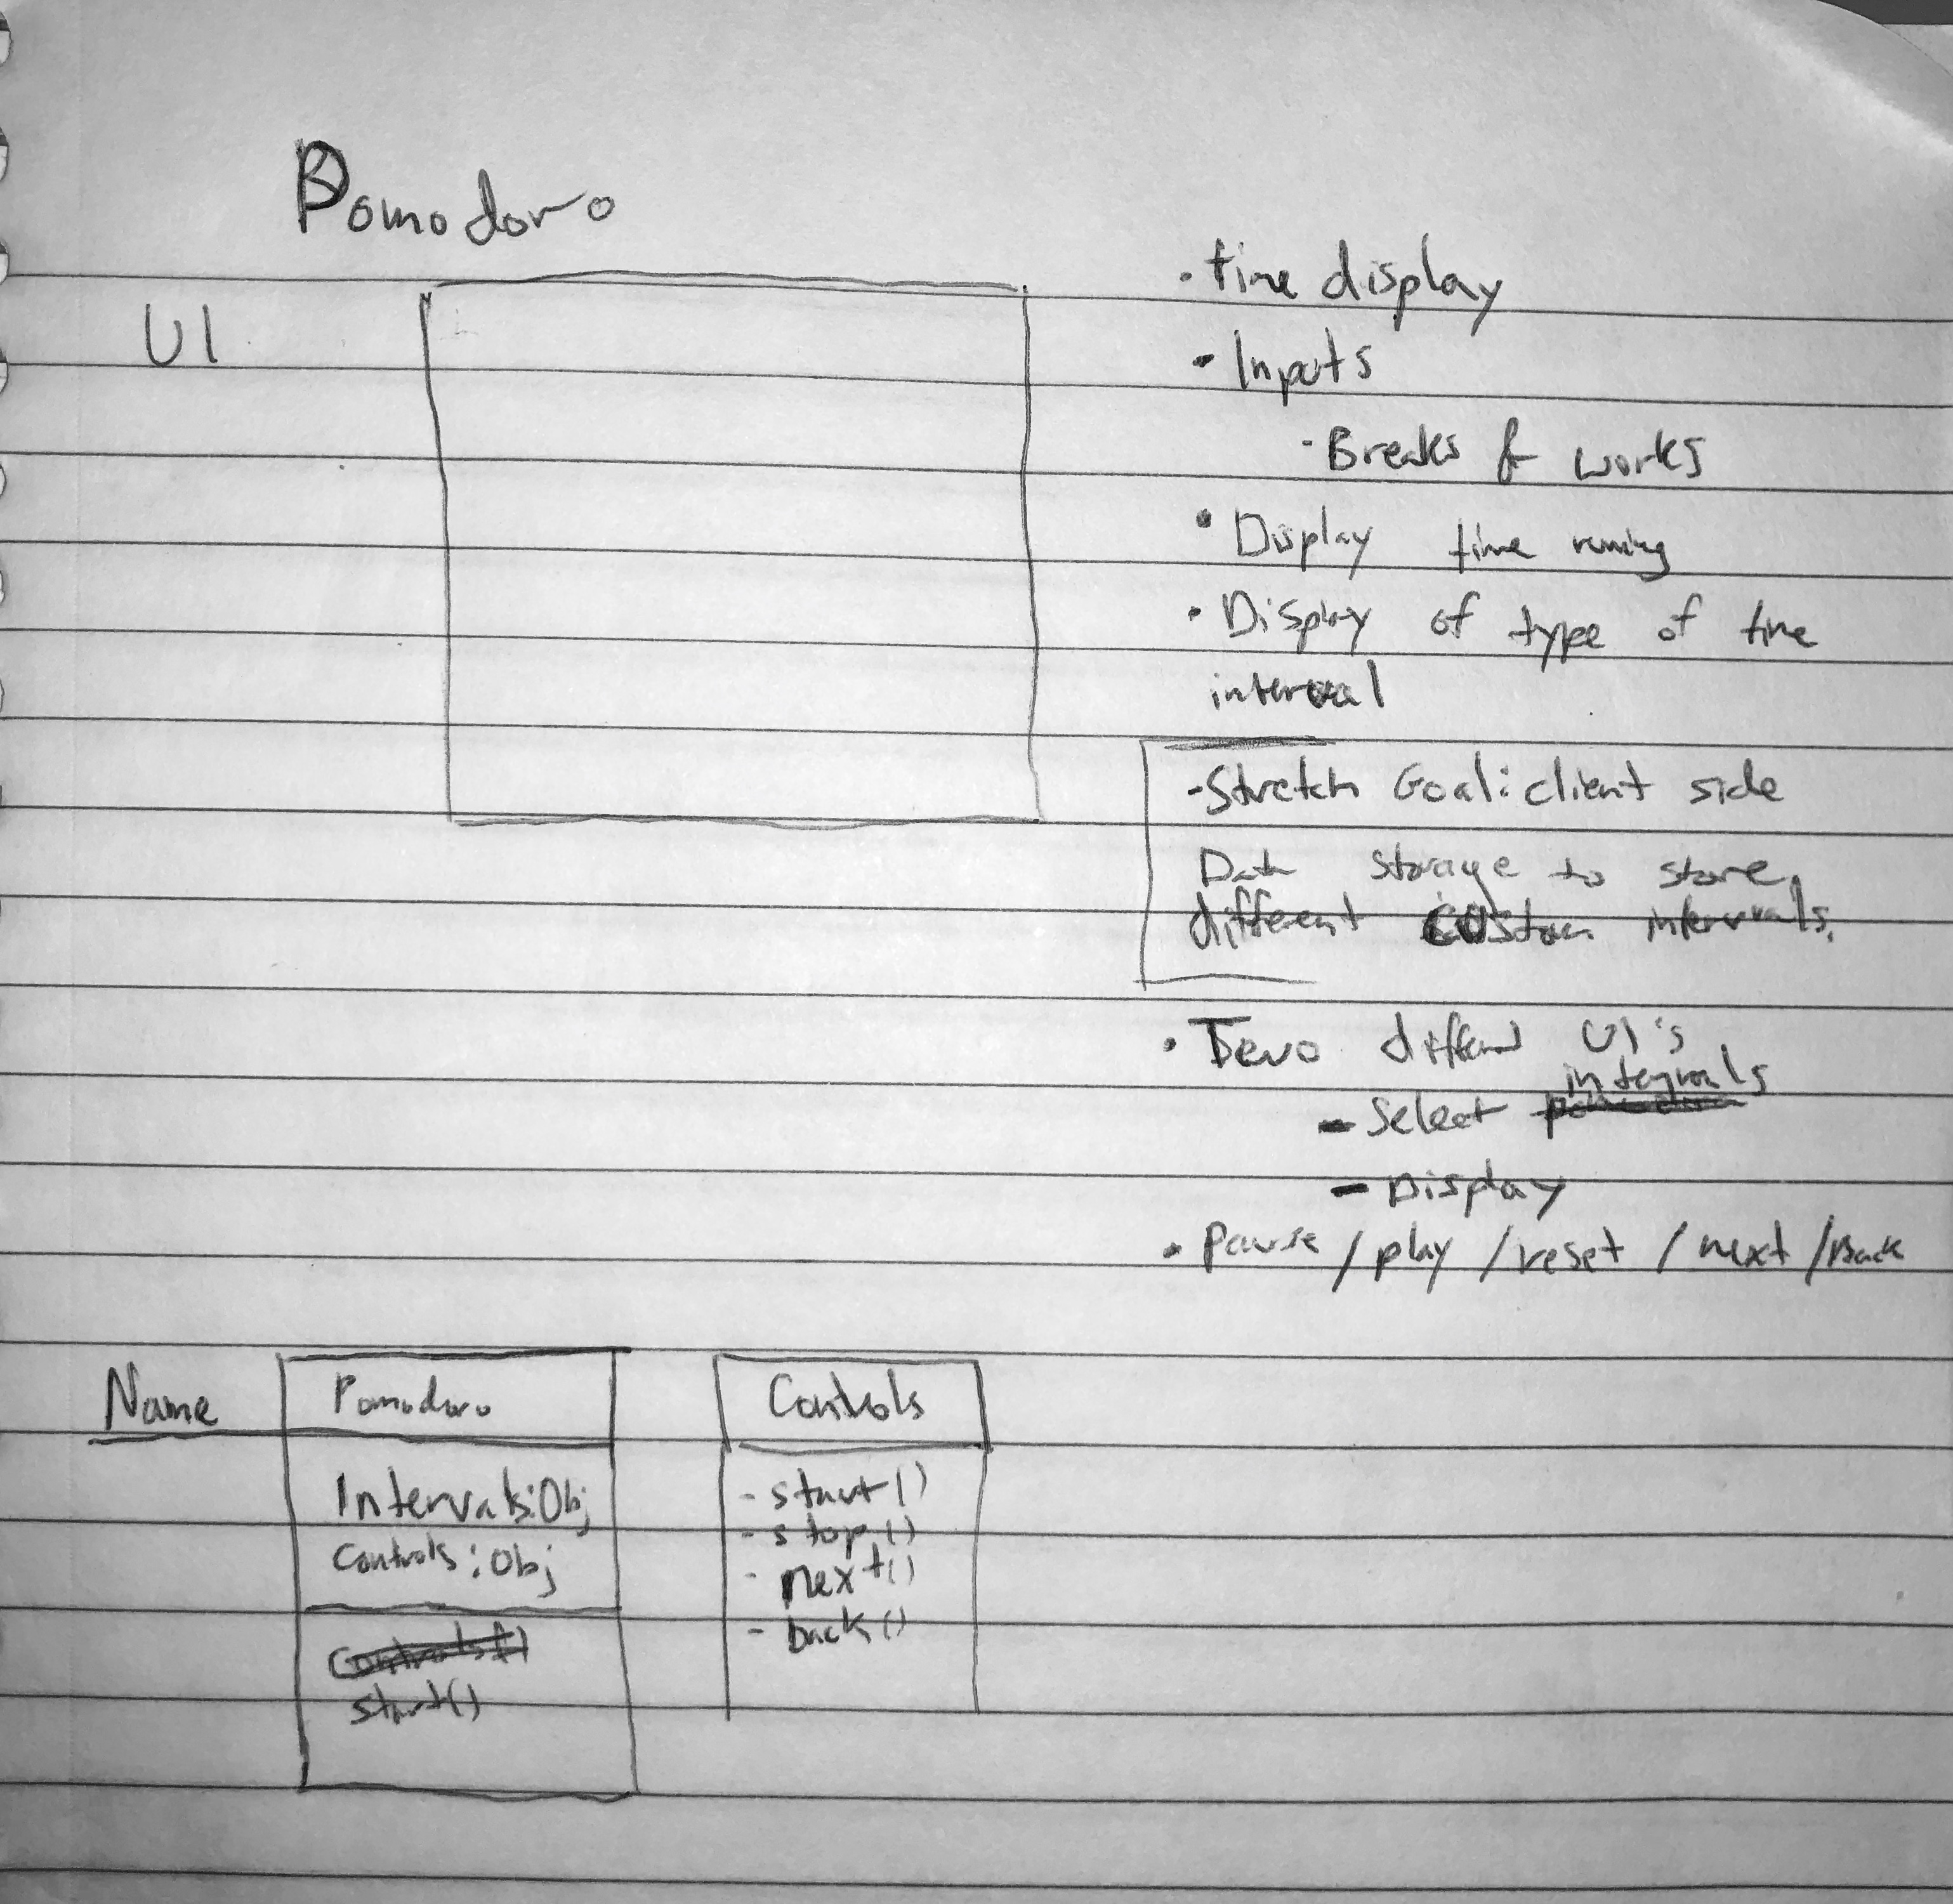 Pomodoro
UI
• time display
• Inputs
• Breaks & works
• Display time runing
• Display of type of time
interval
- Stretch Goal: client side
Data storage to store
different custom intervals.
• Two different UI's
intervals
- Select
- Display
• Pause / play / reset / next / Back
Name
Pomodoro
Intervals: Obj
Controls: Obj
Controls()
start()
Controls
- start()
- stop()
- next()
- back()